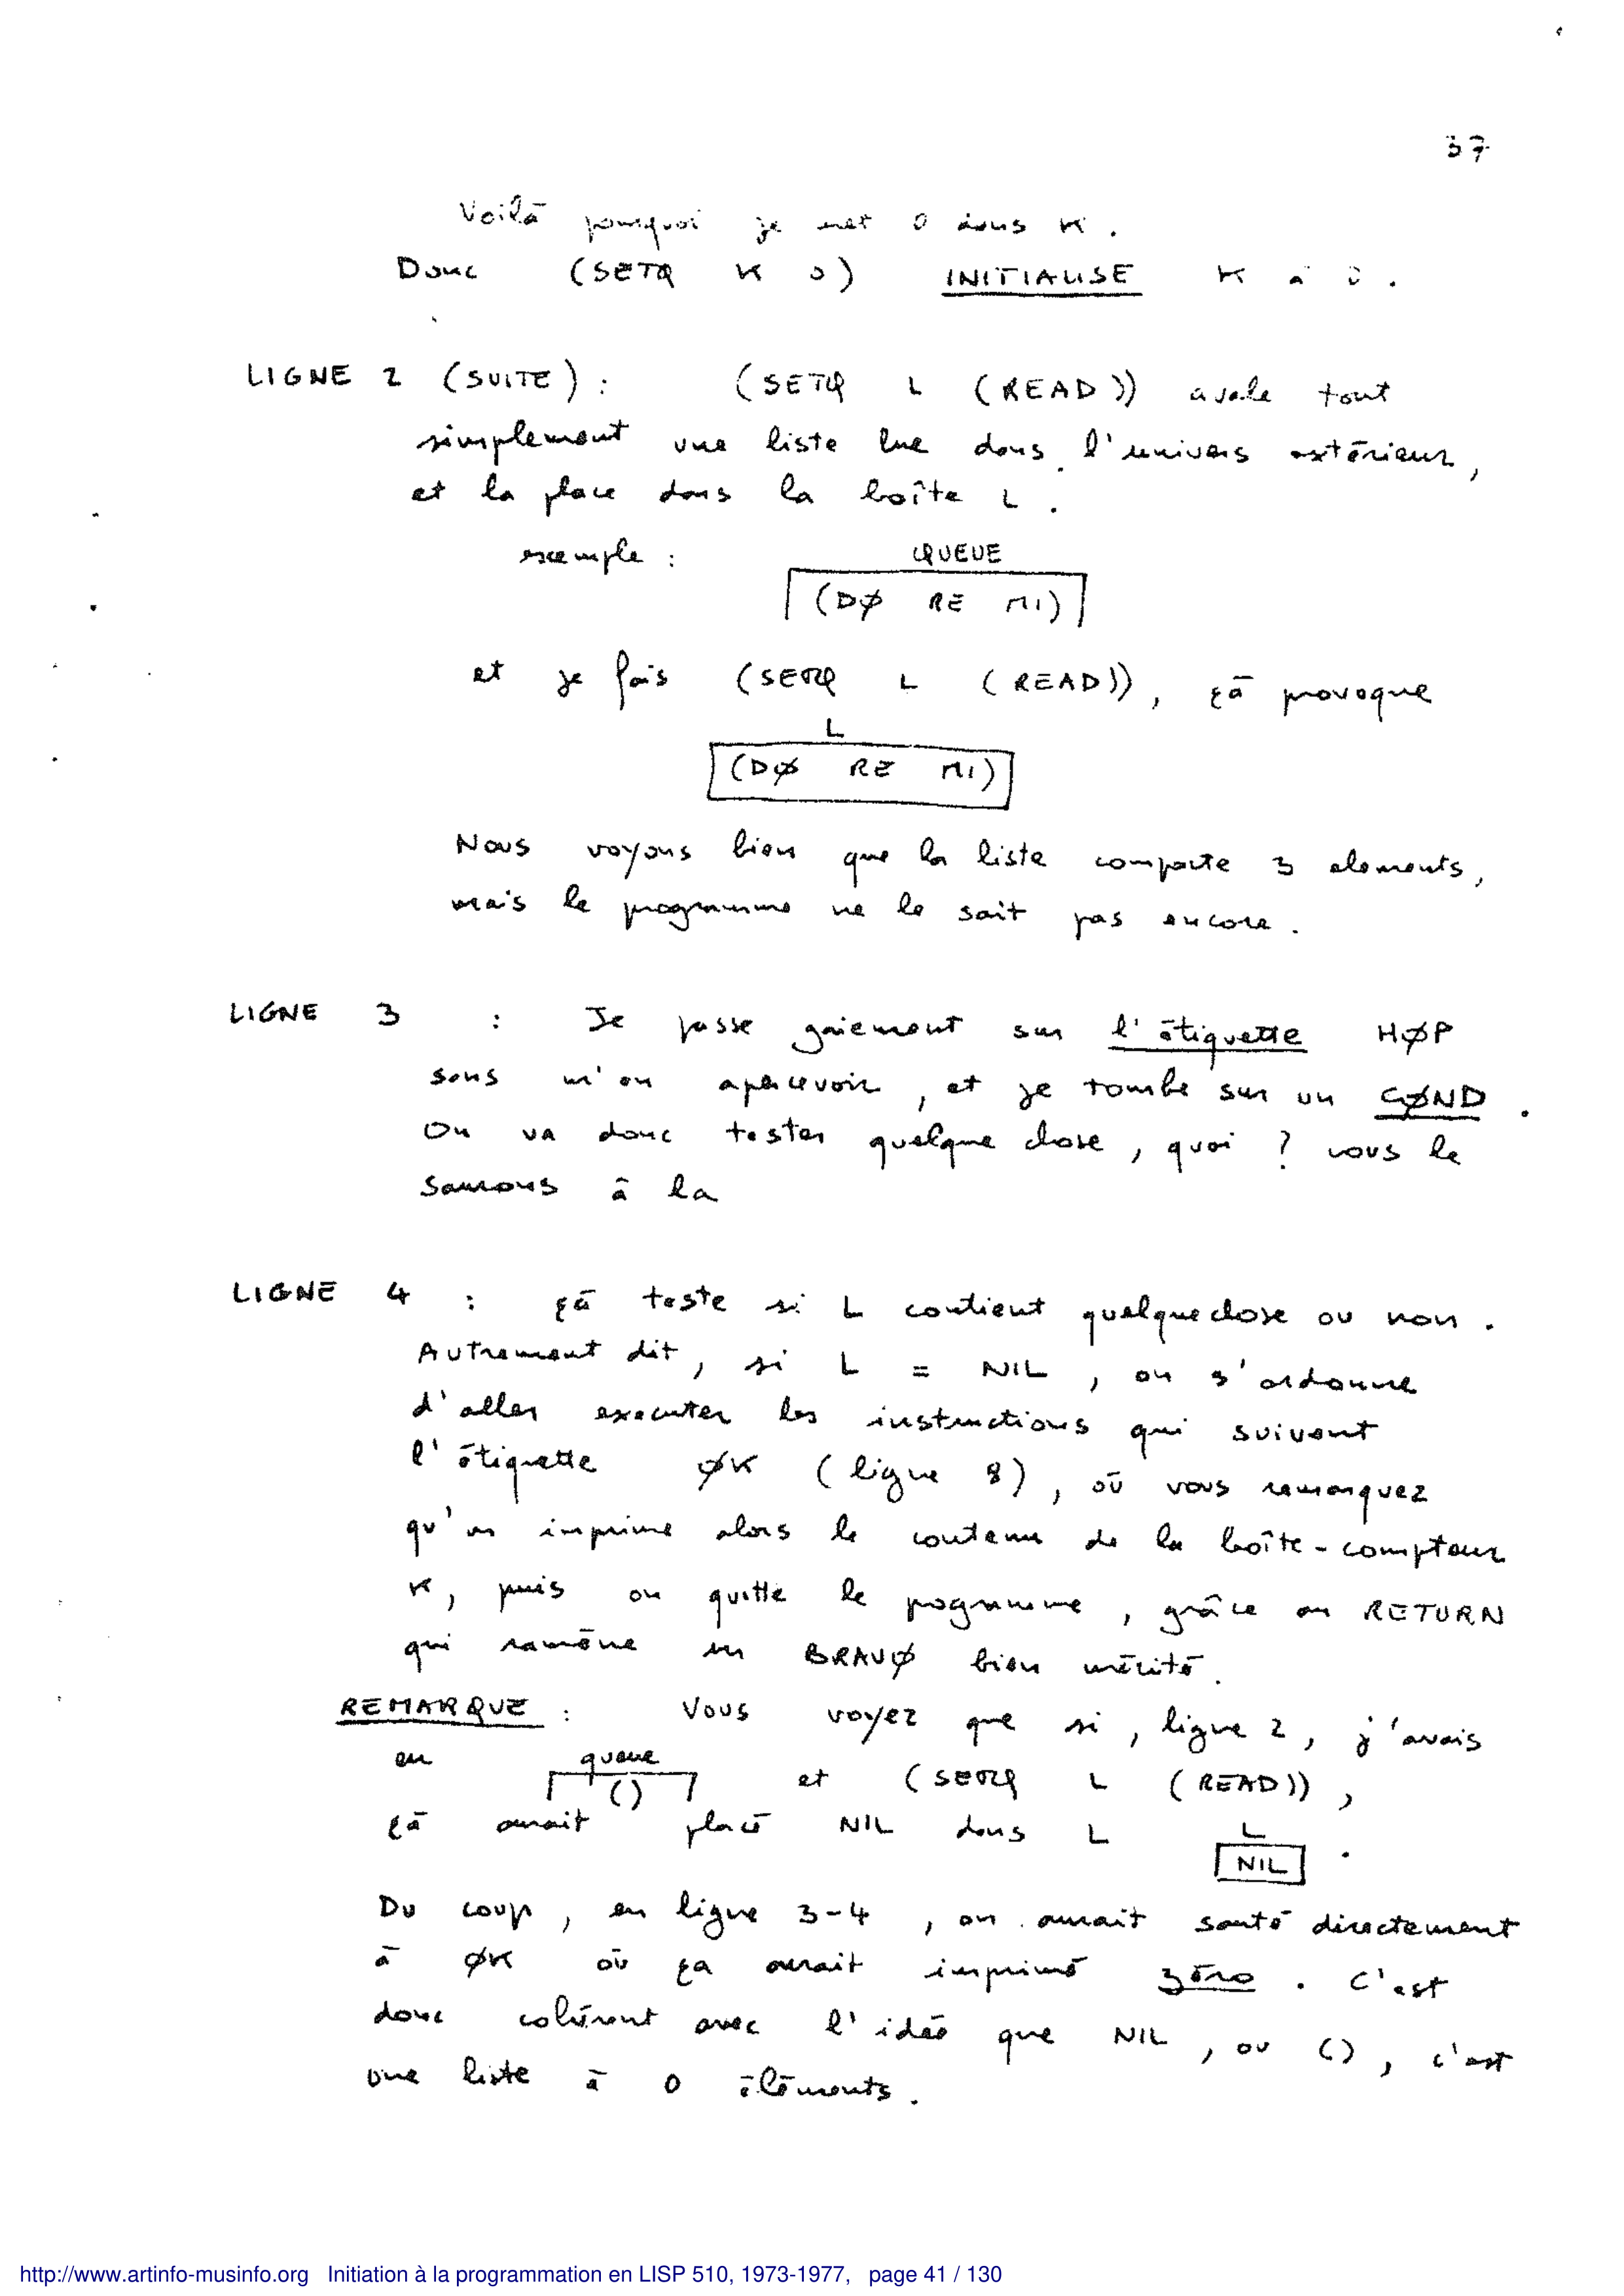 37
Voilà pourquoi je met 0 dans K.
Donc (SETQ K 0) INITIALISE K à 0.
LIGNE 2 (SUITE) : (SETQ L (READ)) avale tout
simplement une liste lue dans l'univers extérieur,
et la place dans la boîte L.
exemple : QUEUE
(DØ RE MI)
et je fais (SETQ L (READ)), çà provoque
L
(DØ RE MI)
Nous voyons bien que la liste comporte 3 elements,
mais le programme ne le sait pas encore.
LIGNE 3 : Je passe gaiement sur l'étiquette HØP
sans m'en apercevoir, et je tombe sur un CØND.
On va donc tester quelque chose, quoi ? vous le
saurons à la
LIGNE 4 : çà teste si L contient quelquechose ou non.
Autrement dit, si L = NIL, on s'ordonne
d'aller executer les instructions qui suivent
l'étiquette ØK (ligne 8), où vous remarquez
qu'on imprime alors le contenu de la boîte-compteur
K, puis on quitte le pogramme, grâce au RETURN
qui ramène un BRAVØ bien mérité.
REMARQUE : Vous voyez que si, ligne 2, j'avais
eu queue
() et (SETQ L (READ)),
çà aurait placé NIL dans L L
NIL .
Du coup, en ligne 3-4, on aurait sauté directement
à ØK où ça aurait imprimé zéro. C'est
donc cohérent avec l'idée que NIL, ou (), c'est
une liste à 0 éléments.
http://www.artinfo-musinfo.org Initiation à la programmation en LISP 510, 1973-1977, page 41 / 130